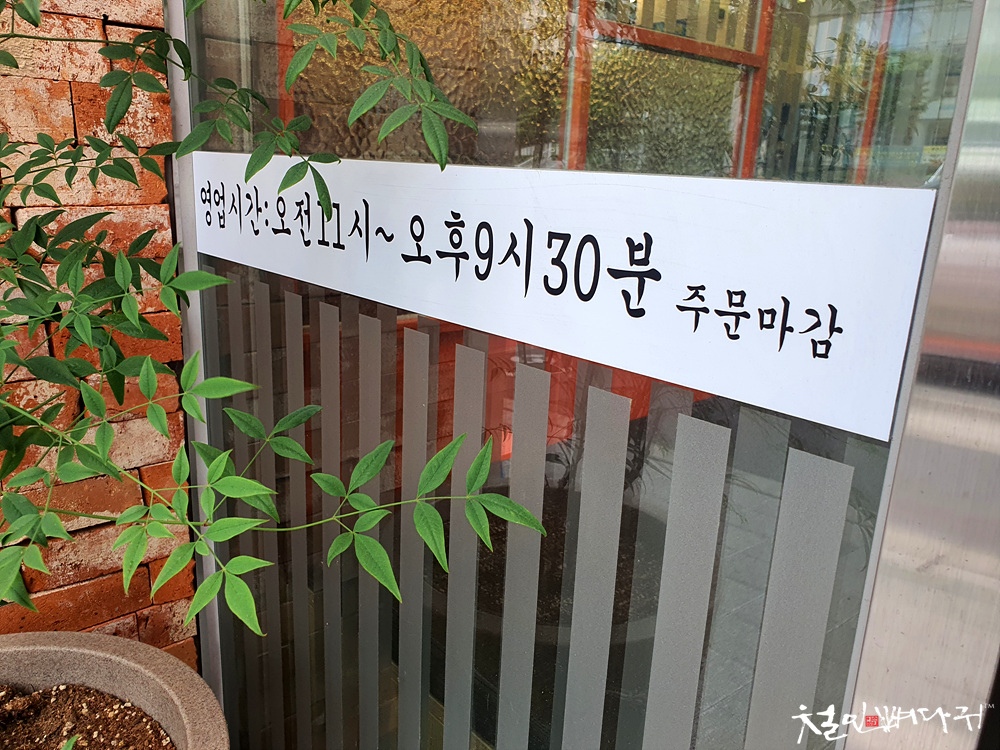 영업시간:오전11시~오후9시30분 주문마감
철인뼈다귀™